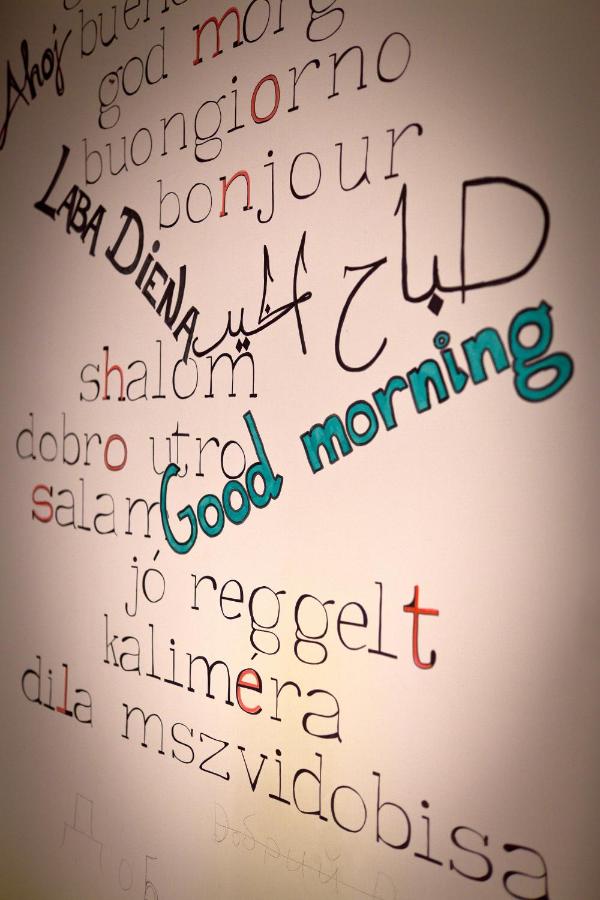 Ahoj
god morg
buongiorno
bonjour
LABA DIENA
صباح الخير
shalom
Good morning
dobro utro
salam
jó reggelt
kaliméra
dila mszvidobisa